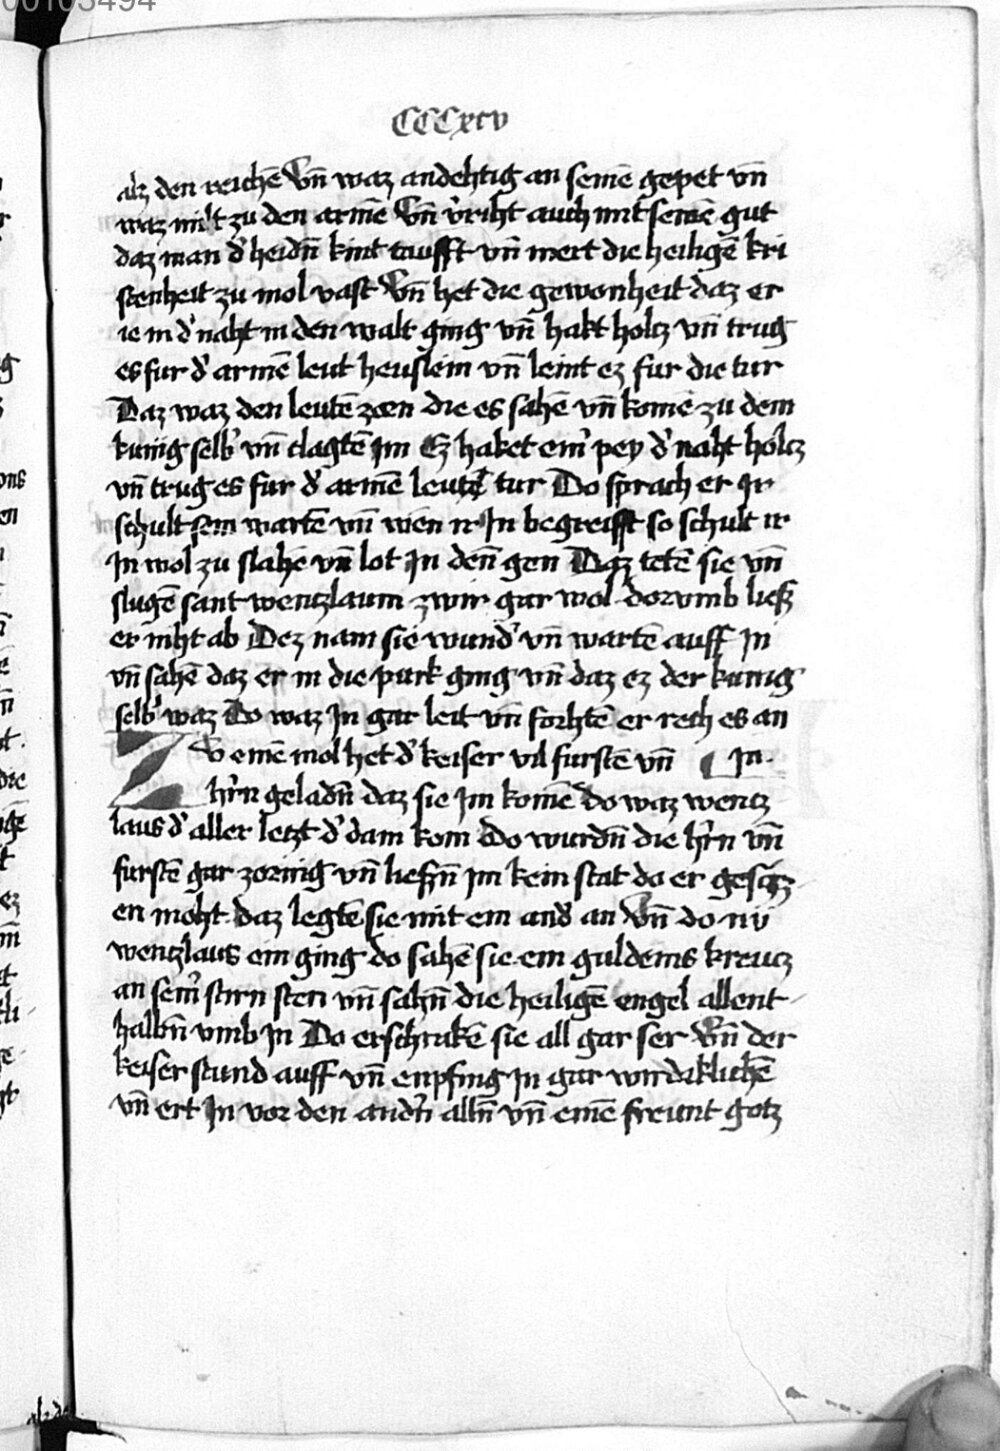 00103494
CCCxcv
alz den reichē Vn̄ waz andehtig an seinē gepet vn̄
waz milt zu den armē Vn̄ v̓riht auch mit seinē gut
daz man d̓ heidn̄ kint taufft vn̄ mert die heiligē kri
stenheit zu mol vast Vn̄ het die gewonheit daz er
ie in d̓ naht in den walt ging vn̄ hakt holtz vn̄ trug
es fur d̓ armē leut heuslein vn̄ leint ez fur die tur
Daz waz den leutē zorn die es sahē vn̄ komē zu dem
kunig selb̓ vn̄ clagtē Im Ez haket ein̓ pey d̓ naht holtz
vn̄ trug es fur d̓ armē leutē tur Do sprach er Ir
schult sein wartē vn̄ wen ir In begreifft so schult ir
In wol zu slahē vn̄ lot In den̄ gen Daz tetē sie vn̄
slugē sant wentzlaum zwir gar wol dorvmb liesz
er niht ab Dez nam sie wund̓ vn̄ wartē auff In
vn̄ sahē daz er in die purk ging vn̄ daz ez der kunig
selb̓ waz Do waz In gar leit vn̄ forhtē er rech es an
Zv einē mol het d̓ keiser vil furstē vn̄ In
h̓rn geladn̄ daz sie Im komē do waz wentz
laus d̓ aller letzt d̓ dar kom Do wurdn̄ die h̓rn vn̄
furstē gar zornig vn̄ liesn̄ Im kein stat do er gesitz
en moht daz legtē sie mit ein and̓ an Vn̄ do nu
wentzlaus ein ging do sahē sie ein guldeins kreutz
an sein̓ stirn sten vn̄ sahn̄ die heiligē engel allent
halbn̄ vmb In Do erschrakē sie all gar ser Vn̄ der
keiser stund auff vn̄ enpfing In gar wirdiklichē
vn̄ ert In vor den and̓n alln̄ vn̄ einē freunt gotz